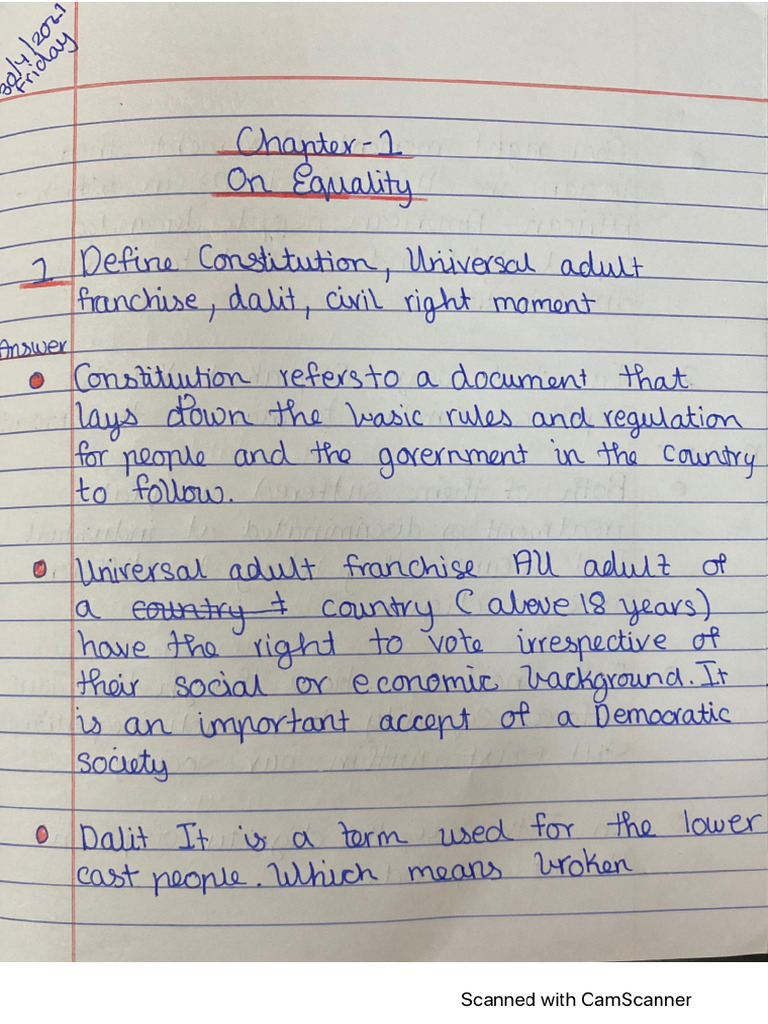 30/4/2021
Friday
Chapter-1
On Equality
1 Define Constitution, Universal adult
franchise, dalit, civil right moment
Answer
• Constitution refers to a document that
lays down the basic rules and regulation
for people and the government in the country
to follow.
• Universal adult franchise All adult of
a country t country (above 18 years)
have the right to vote irrespective of
their social or economic background. It
is an important accept of a Democratic
society
• Dalit It is a term used for the lower
cast people. Which means broken
Scanned with CamScanner